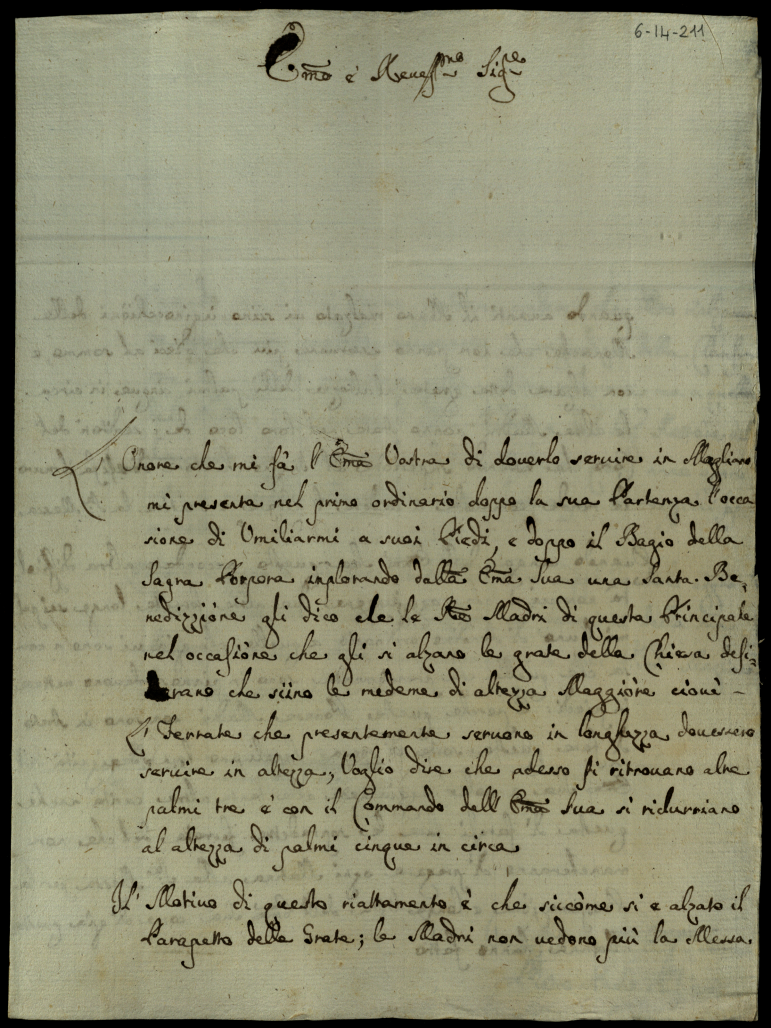 6-14-211
Emo è Reuessmo Sigre
L'Onore che mi fà l'Ema Vostra di douerlo seruire in Magliano
mi presenta nel primo ordinario doppo la sua Partenza l'occa
sione di Vmiliarmi a suoi Piedi, e doppo il Bagio della
Sagra Pòrpora inplorando dalla Ema Sua una Santa Be,
nedizziòne gli dico che le Rde Madri di questa Principale
nel occasiòne che gli si alzano le grate della Chiesa desi,
derano che siino le medeme di altezza Maggiòre ciouè -
L' Ferrate che presentemente seruono in longhezza douessero
seruire in altezza, Voglio dire che adesso si ritrouano alte
palmi tre è con il Commando dell' Ema Sua si ridurriano
al altezza di palmi cinque in circa
Il' Motiuo di questo riattamento è che siccòme si è alzato il
Parapetto delle Grate; le Madri non uedono più la Messa.